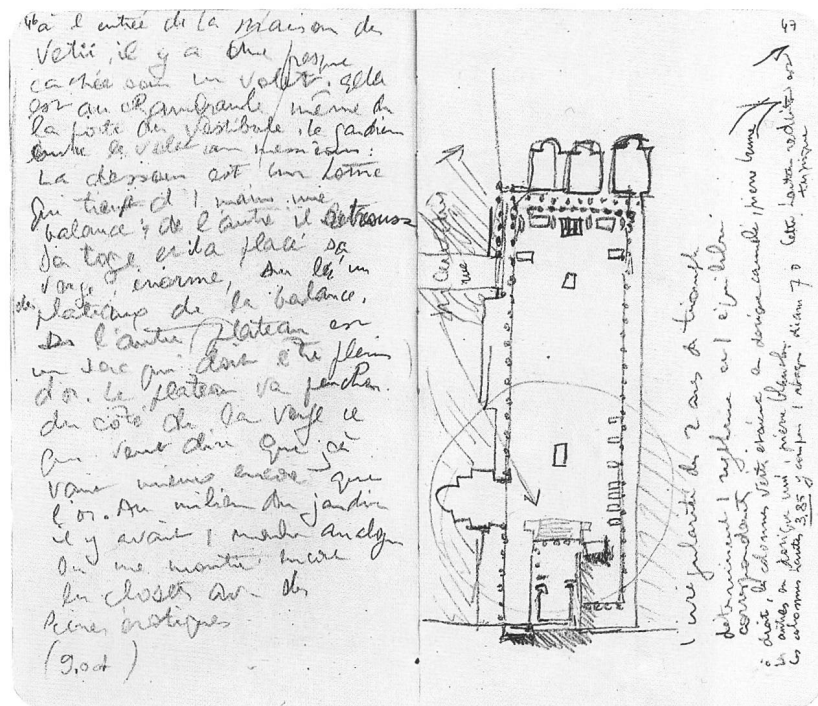 46
à l'entrée de la maison des
Vetii, il y a une presque
cachée sous un volet, elle
est au chambranle même de
la porte du vestibule, le gardien
ouvre le volet aux messieurs:
La dessous est un homme
qui tient d 1 main une
balance; de l'autre il retrousse
sa toge et il a placé sa
verge, énorme, sur l'un
des plateaux de la balance.
Ds l'autre plateau est
un sac qui doit être plein
d'or. Le plateau va pencher
du côté de la verge ce
qui veut dire que çà
vaut mieux encore que
l'or. Au milieu du jardin
il y avait 1 marbre analogue
On me montre encore
les closets avec des
scènes érotiques
(9. oct)
47
rue
l'irrégularité des 2 axes de triomphe
déterminent 1 rythme et 1 équilibre
correspondent
à droite les colonnes vertes étaient en dorique cannelé, pierre brune
les autres en dorique uni, pierre blanche
les colonnes hautes 3,85 y compris l'abaque diam 70 Cette hauteur réduite est
typique